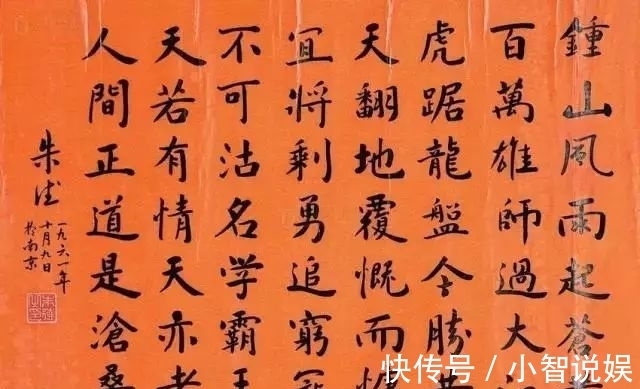 鍾山風雨起蒼
百萬雄師過大
虎踞龍盤今勝
天翻地覆慨而
宜將剩勇追窮
不可沽名学霸王
天若有情天亦老
人間正道是滄桑
朱德
一九六一年
十月九日
於南京
快传号 / 小智说娱